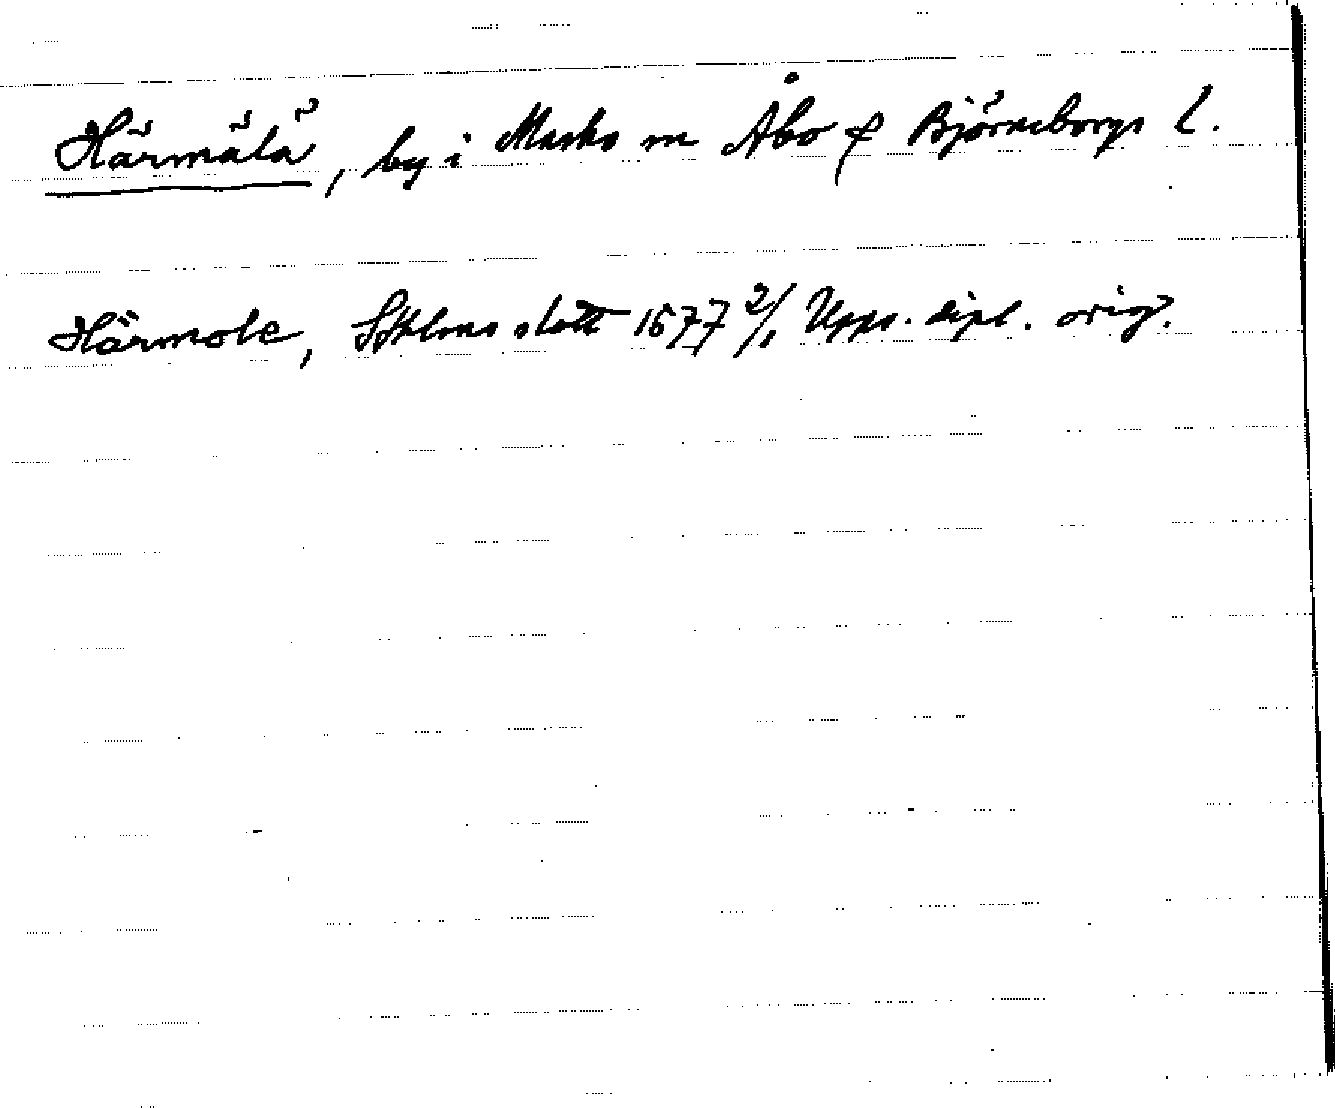 Härmälä, by i Masku sn Åbo & Björneborgs l.
Härmole, Sthlms slott 1677 2/1 Upps. dipl. orig.